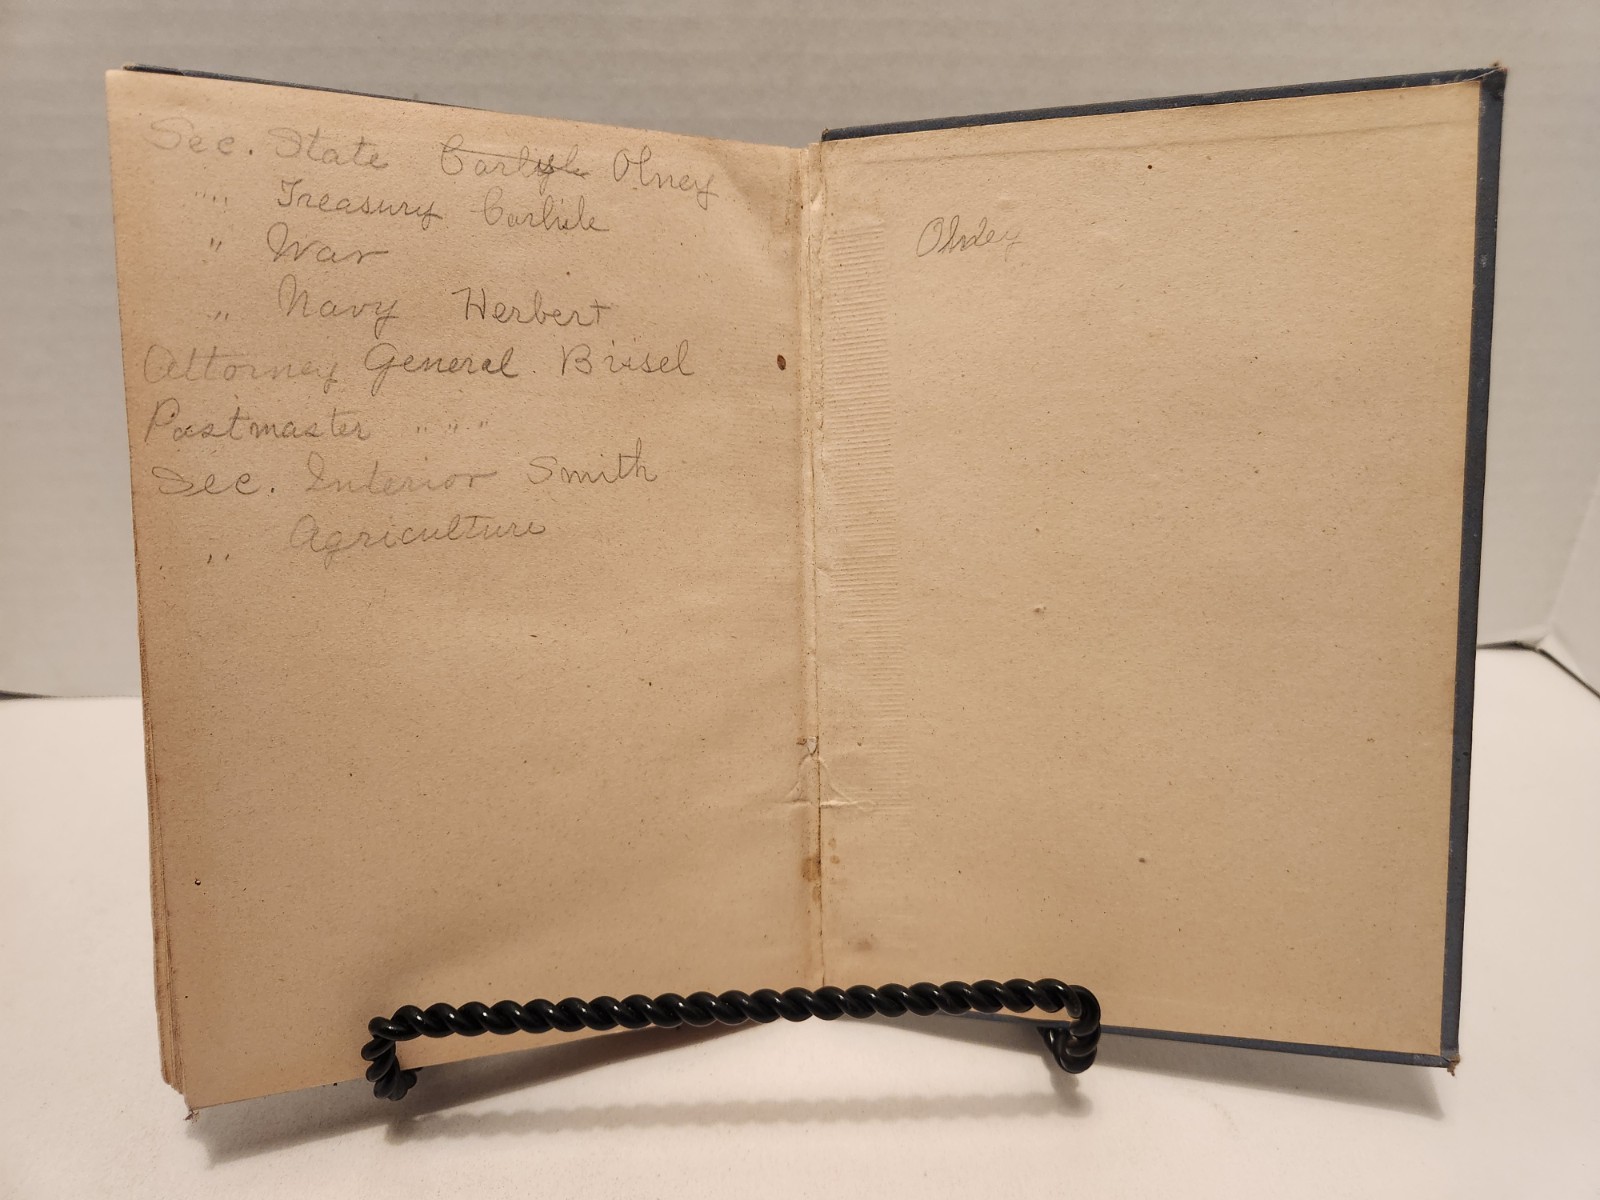 Sec. State Carlyle Olney
" " Treasury Carlisle
" War
" Navy Herbert
Attorney General. Brisel
Postmaster " " "
Sec. Interior Smith
" Agriculture
Olney